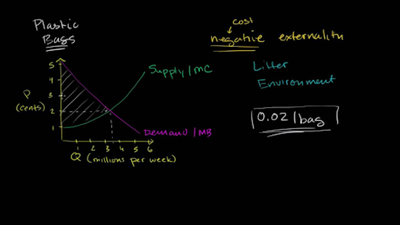 Plastic
Bags
cost
negative externality
Litter
Environment
0.02/bag
Supply/MC
Demand/MB
P
(cents)
5
4
3
2
1
1 2 3 4 5 6
Q (millions per week)